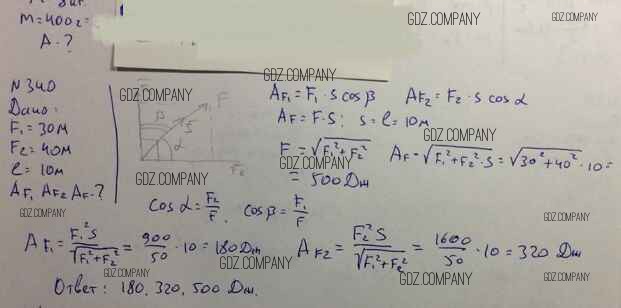 M=400г=
A-?
GDZ.COMPANY
GDZ.COMPANY
N340
Дано:
F₁=30н
F₂=40м
ℓ=10м
A_F₁, A_F₂ A_F-?
GDZ.COMPANY
β
F
S
α
F₂
GDZ.COMPANY
GDZ.COMPANY
A_F₁=F₁·S cosβ A_F₂=F₂·S cosα
A_F=F·S; S=ℓ=10м
GDZ.COMPANY
F=√F₁²+F₂² A_F=√F₁²+F₂²·S=√30²+40²·10=
GDZ.COMPANY
=500Дж
GDZ.COMPANY
cosα=F₂/F, cosβ=F₁/F
GDZ.COMPANY
GDZ.COMPANY
A_F₁=F₁²S/√F₁²+F₂²=900/50·10=180Дж A_F₂=F₂²S/√F₁²+F₂²=1600/50·10=320 Дж
GDZ.COMPANY
GDZ.COMPANY
GDZ.COMPANY
GDZ.COMPANY
GDZ.COMPANY
Ответ: 180, 320, 500 Дж.